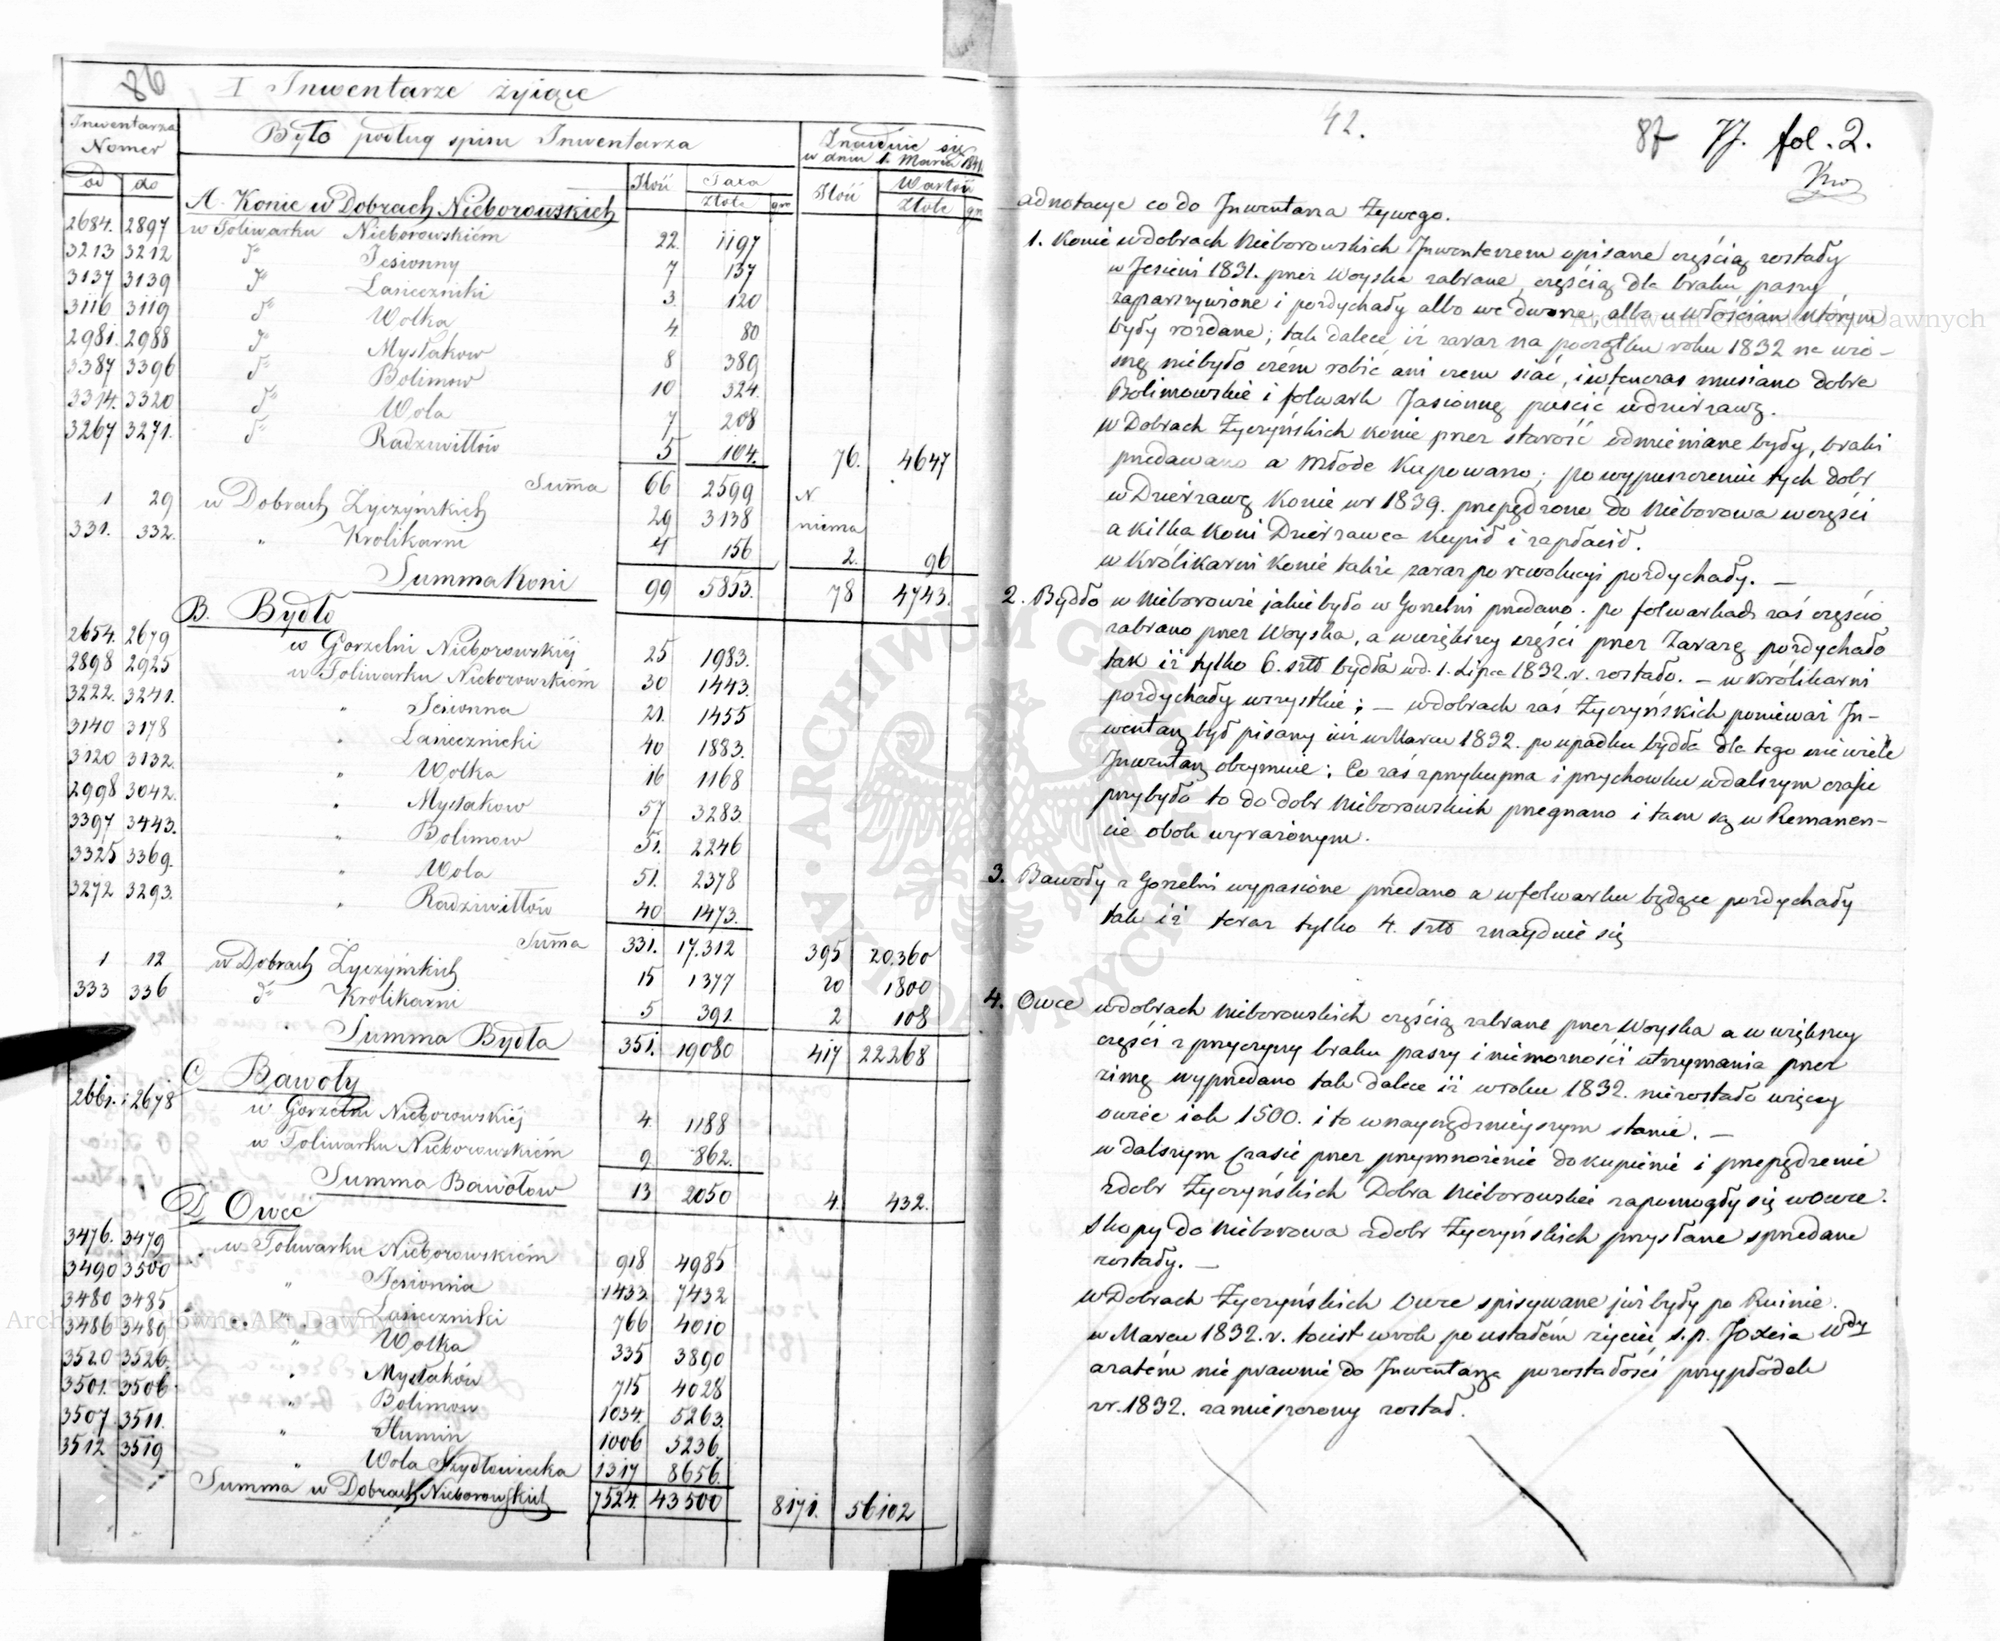 86
I Inwentarze żyiące
Inwentarza Nomer
Było podług spisu Inwentarza
Znayduie się w dniu 1. Marca
od do Ilość Taxa Złote gro Ilość Wartość Złote gro
A. Konie w Dobrach Nieborowskich
2684. 2897 w Folwarku Nieborowskiém 22. 1197
3213 3212 do Jesionny 7 137
3137 3139 do Lasieczniki 3 120
3116 3119 do Wolka 4. 80
2981. 2988 do Mysłakow 8 389
3387 3396 do Bolimow 10 324.
3314. 3320 do Wola 7 208
3267 3271. do Radziwiłłów 5 104. 76. 4647
Suma 66 2599
1 29 w Dobrach Życzyńskich 29 3138 niema
331. 332. " Krolikarni 4 156 2. 96
Summa Koni 99 5853. 78 4743.
B. Bydło
2654. 2679 w Gorzelni Nieborowskiéj 25 1983.
2898 2925 w Folwarku Nieborowskiém 30 1443.
3222. 3241. " Jesionna 21. 1455
3140 3178 " Lasiecznicki 40 1883.
3120 3132. " Wolka 16 1168
2998 3042. " Mysłakow 57 3283.
3397 3443. " Bolimow 51. 2246
3325 3369. " Wola 51. 2378
3272 3293. " Radziwiłłów 40 1473.
Suma 331. 17.312 395 20.360
1 12 w Dobrach Życzyńskich 15 1377 20 1800
333 336 do Krolikarni 5 391. 2 108
Summa Bydła 351. 19080 417 22268
C Bawoły
2661. 2678 w Gorzelni Nieborowskiéj 4. 1188
w Folwarku Nieborowskiém 9 862.
Summa Bawołow 13 2050 4. 432.
D Owce
3476. 3479 w Folwarku Nieborowskiém 918 4985
3490 3500 " Jesionna 1433. 7432
3480 3485 " Lasieczniki 766 4010
3486 3489 " Wolka 335 3890
3520 3526. " Mysłaków 715 4028
3501. 3506 " Bolimow 1034. 5263.
3507. 3511. " Humin 1006 5236.
3512 3519 " Wola Szydłowiecka 1317 8656.
Summa w Dobrach Nieborowskich 7524. 43500 8171. 56102
42.
87 77. fol. 2.
adnotacye co do Inwentarza Żywego.
1. Konie w dobrach Nieborowskich Inwentarzem opisane częścią zostały
w Jesieni 1831. przez Woyska zabrane, częścią dla braku paszy
zaparszywione i pozdychały albo we dworze albo u włościan którym
były rozdane; tak dalece iż zaraz na początku roku 1832 na wio-
snę niebyło czém robić ani czem siać, i wtenczas musiano dobra
Bolimowskie i folwark Jasionnę puścić w dzierżawę.
w Dobrach Życzyńskich konie przez starość odmieniane były, braki
przedawano a Młode Kupowano; po wypuszczeniu tych dobr
w Dzierżawę Konie w r 1839. przepędzone do Nieborowa w części
a Kilka Koni Dzierżawca Kupił i zapłacił.
w Królikarni Konie także zaraz po rewolucyi pozdychały. —
2. Bydło w Nieborowie jakie było w Gorzelni przedano. po folwarkach zaś częścio
zabrano przez Woyska, a w większey części przez Zarazę pozdychało
tak iż tylko 6. sztk bydła w d. 1. Lipca 1832. r. zostało. — w królikarni
pozdychały wszystkie; — w dobrach zaś Życzyńskich ponieważ In-
wentarz był pisany iuż w Marcu 1832. po upadku bydła dla tego niewiele
Inwentarz obeymuie; Co zaś z przykupna i przychowku w dalszym czasie
przybyło to do dobr Nieborowskich przegnano i tam są w Remanen-
cie obok wyrażonym.
3. Bawoły z Gorzelni wypasione przedano a w folwarku będące pozdychały
tak iż teraz tylko 4. sztk znayduie się
4. Owce w dobrach Nieborowskich częścią zabrane przez Woyska a w większey
części z przyczyny braku paszy i niemożności utrzymania przez
zimę wyprzedano tak dalece iż w roku 1832. niezostało więcey
owiec iak 1500. i to w naynędznieyszym stanie. —
w dalszym Czasie przez przymnożenie dokupienie i przepędzenie
z dobr Życzyńskich Dobra Nieborowskie zapomogły się w owce.
Skopy do Nieborowa z dobr Życzyńskich przysłane sprzedane
zostały. —
w Dobrach Życzyńskich Owce spisywane już były po Ruinie
w Marcu 1832. r. to iest w rok po ustałém życiu ś. p. Joxcia Wdy
a zatém nie prawnie do Inwentarza pozostałości przypłodek
z r. 1832. zamieszczony został.
Archiwum Główne Akt Dawnych